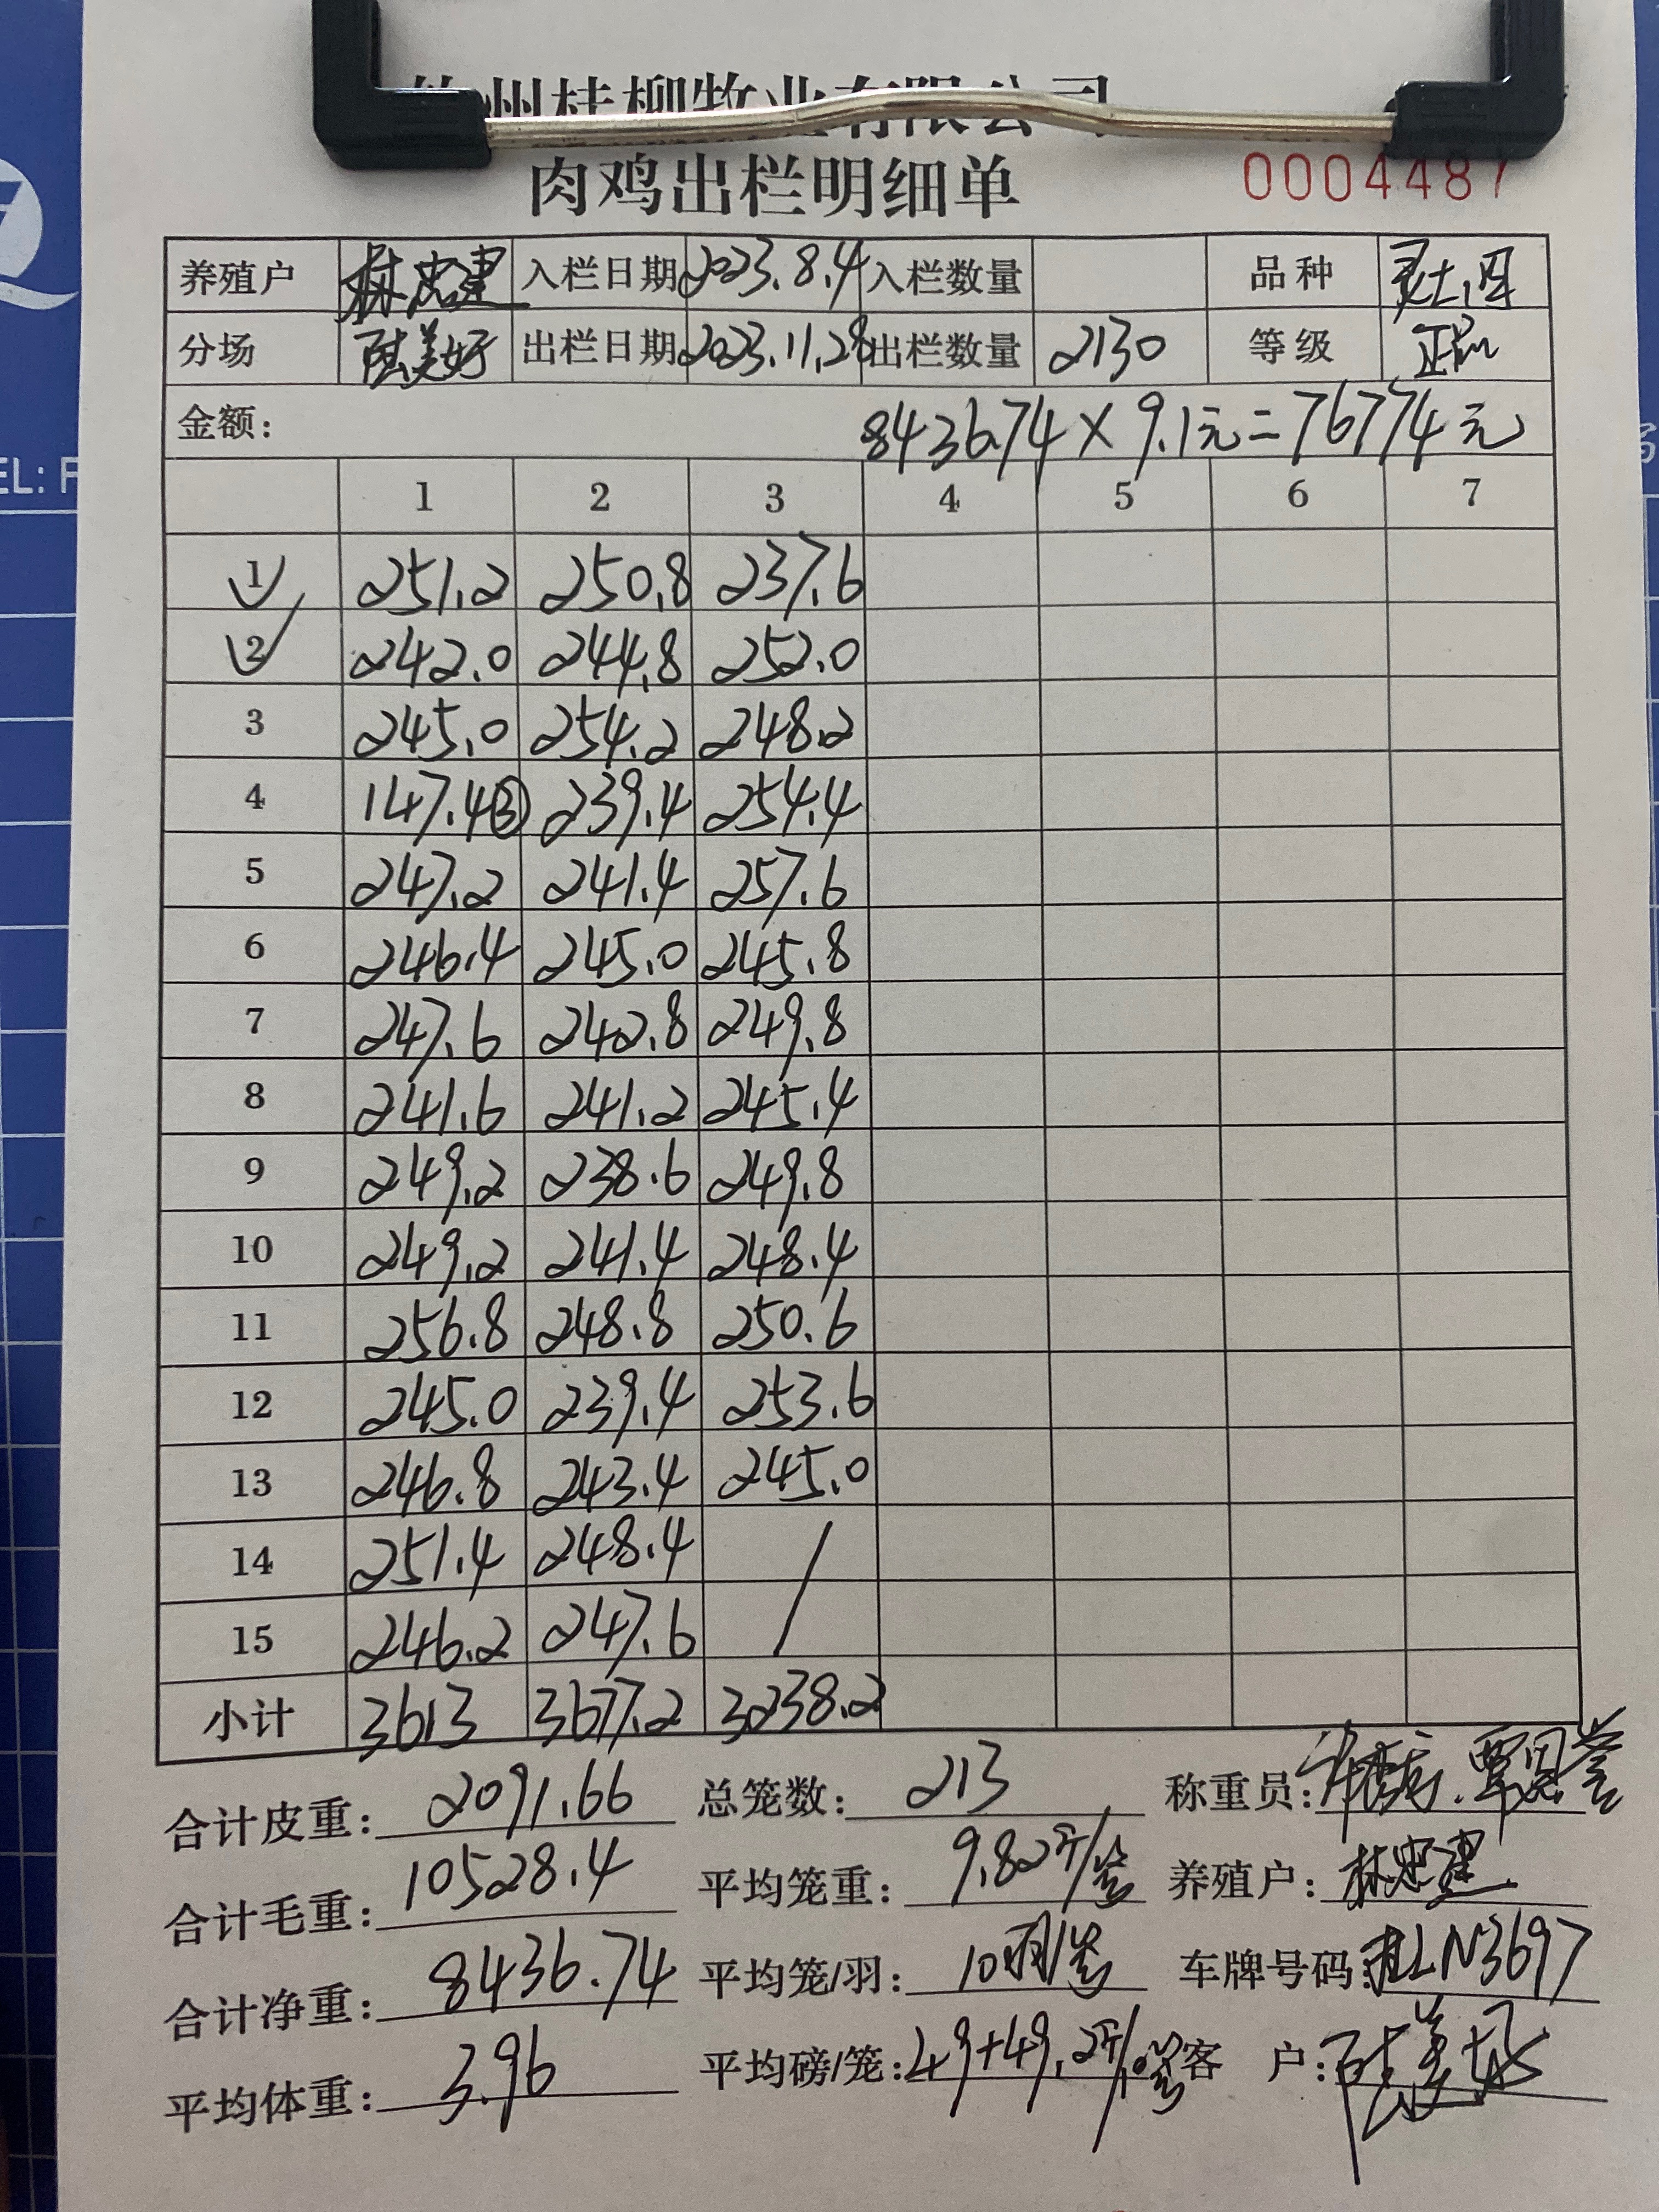 州桂柳牧业有限公司
肉鸡出栏明细单 0004487
养殖户 林忠建 入栏日期 2023.8.4 入栏数量 品种
分场 陆美好 出栏日期 2023.11.28 出栏数量 2130 等级 正品
金额: 8436.74×9.1元=76774元
1 2 3 4 5 6 7
1 251.2 250.8 237.6
2 242.0 244.8 252.0
3 245.0 254.2 248.2
4 147.4③ 239.4 254.4
5 247.2 241.4 257.6
6 246.4 245.0 245.8
7 247.6 242.8 249.8
8 241.6 241.2 245.4
9 249.2 238.6 249.8
10 249.2 241.4 248.4
11 256.8 248.8 250.6
12 245.0 239.4 253.6
13 246.8 243.4 245.0
14 251.4 248.4 /
15 246.2 247.6
小计 3613 3677.2 3238.2
合计皮重: 2091.66 总笼数: 213 称重员:
合计毛重: 10528.4 平均笼重: 9.82斤/笼 养殖户: 林忠建
合计净重: 8436.74 平均笼/羽: 10羽/笼 车牌号码: 桂LN3697
平均体重: 3.96 平均磅/笼: 49+49.2斤/笼 客户: 陆美好